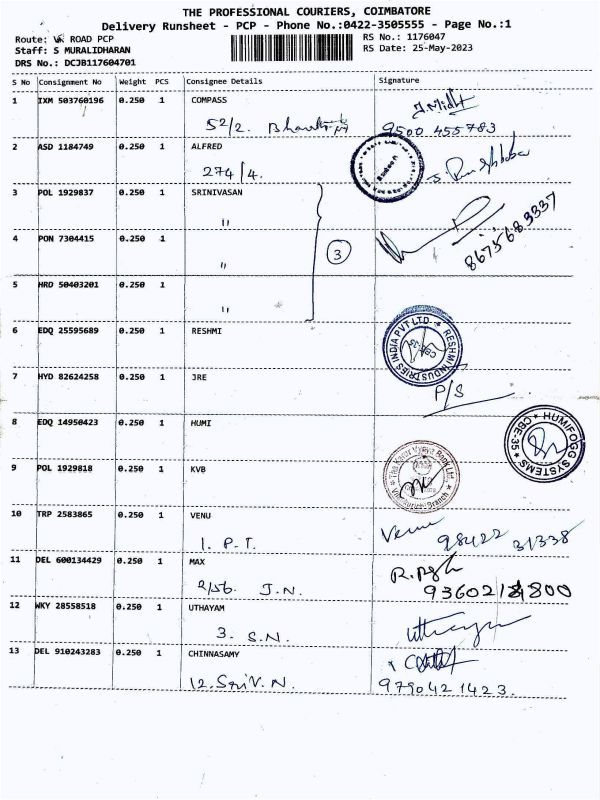 THE PROFESSIONAL COURIERS, COIMBATORE
Delivery Runsheet - PCP - Phone No.:0422-3505555 - Page No.:1
Route: ROAD PCP RS No.: 1176047
Staff: S MURALIDHARAN RS Date: 25-May-2023
DRS No.: DCJB117604701
S No Consignment No Weight PCS Consignee Details Signature
1 IXM 503760196 0.250 1 COMPASS
52/2. 9500 455783
2 ASD 1184749 0.250 1 ALFRED
274/4.
3 POL 1929837 0.250 1 SRINIVASAN
"
4 PON 7304415 0.250 1 3 8675683337
"
5 HRD 50403201 0.250 1
"
6 EDQ 25595689 0.250 1 RESHMI RESHMI INDUSTRIES INDIA PVT LTD. CBE-35
7 HYD 82624258 0.250 1 JRE
P/S
8 EDQ 14950423 0.250 1 HUMI HUMIFOGG SYSTEMS CBE-35
9 POL 1929818 0.250 1 KVB The Karur Vysya Bank Ltd. Branch
10 TRP 2583865 0.250 1 VENU
1. P.T. Venu 98422 31338
11 DEL 600134429 0.250 1 MAX
2/56. J.N.
12 WKY 28558518 0.250 1 UTHAYAM
3. S.N. Uthayam
13 DEL 910243283 0.250 1 CHINNASAMY
12. Sri V. N. 9790421423.